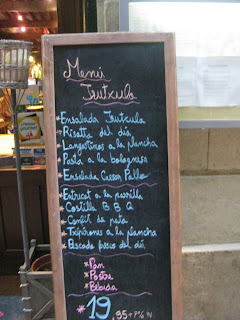 Menú
Frutxula
Ensalada Frutxula
Risotto del día
Langostinos a la plancha
Pasta a la bolognesa
Ensalada Cesar Pollo
Entricot a la parrilla
Costilla B B Q
Confit de pato
Txipirones a la plancha
Pescado fresco del día
* Pan
* Postre
* Bebida
* 19,95 +